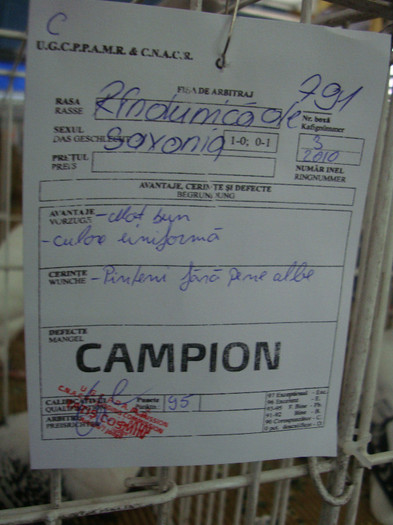 C
U.G.C.P.P.A.M.R. & C.N.A.C.R.
FIȘA DE ARBITRAJ
791
RASA
RASSE
Rândunică de
Nr. boxă
Kafignummer
SEXUL
DAS GESCHLECHT
Saxonia
1-0; 0-1
3
2010
PREȚUL
PREIS
NUMĂR INEL
RINGNUMMER
AVANTAJE, CERINȚE ȘI DEFECTE
BEGRUNDUNG
AVANTAJE
VORZUGE
- mot bun
- culoare uniformă
CERINȚE
WUNCHE
- Pinteni fără pene albe
DEFECTE
MANGEL
CAMPION
CALIFICATIVUL
Puncte
Punkte
95
ARBITRU
PREISRICHTER
97 Excepțional - Exc.
96 Excelent - E.
93-95 F. Bine - Fb.
91-92 Bine - B.
90 Corespunzător - C.
0 pct. descalificat - D.